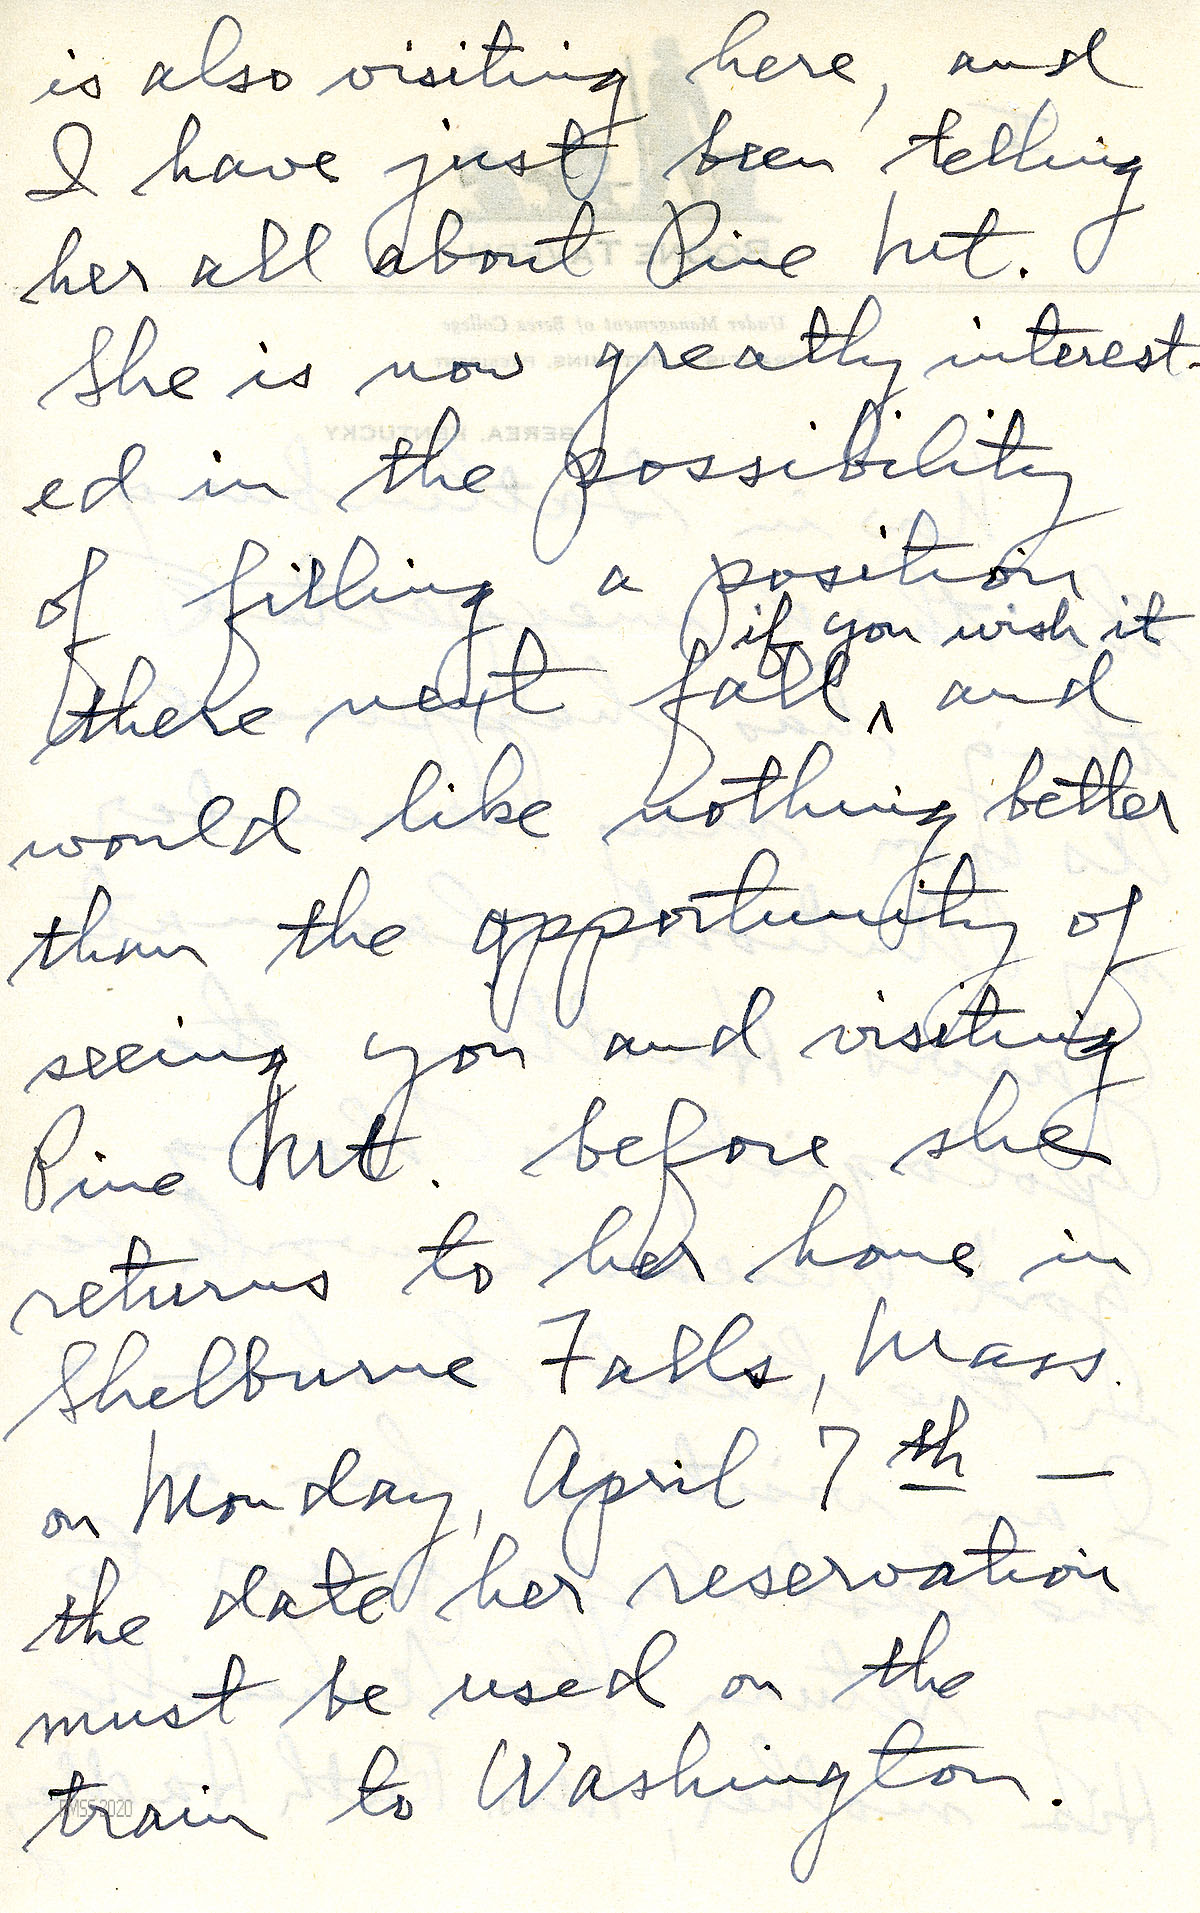 is also visiting here, and
I have just been telling
her all about Pine Mt.
She is now greatly interest-
ed in the possibility
of filling a position
if you wish it
there next fall, ^ and
would like nothing better
than the opportunity of
seeing you and visiting
Pine Mt. before she
returns to her home in
Shelburne Falls, Mass.
on Monday, April 7th —
the date her reservation
must be used on the
train to Washington.
PMSS 2020